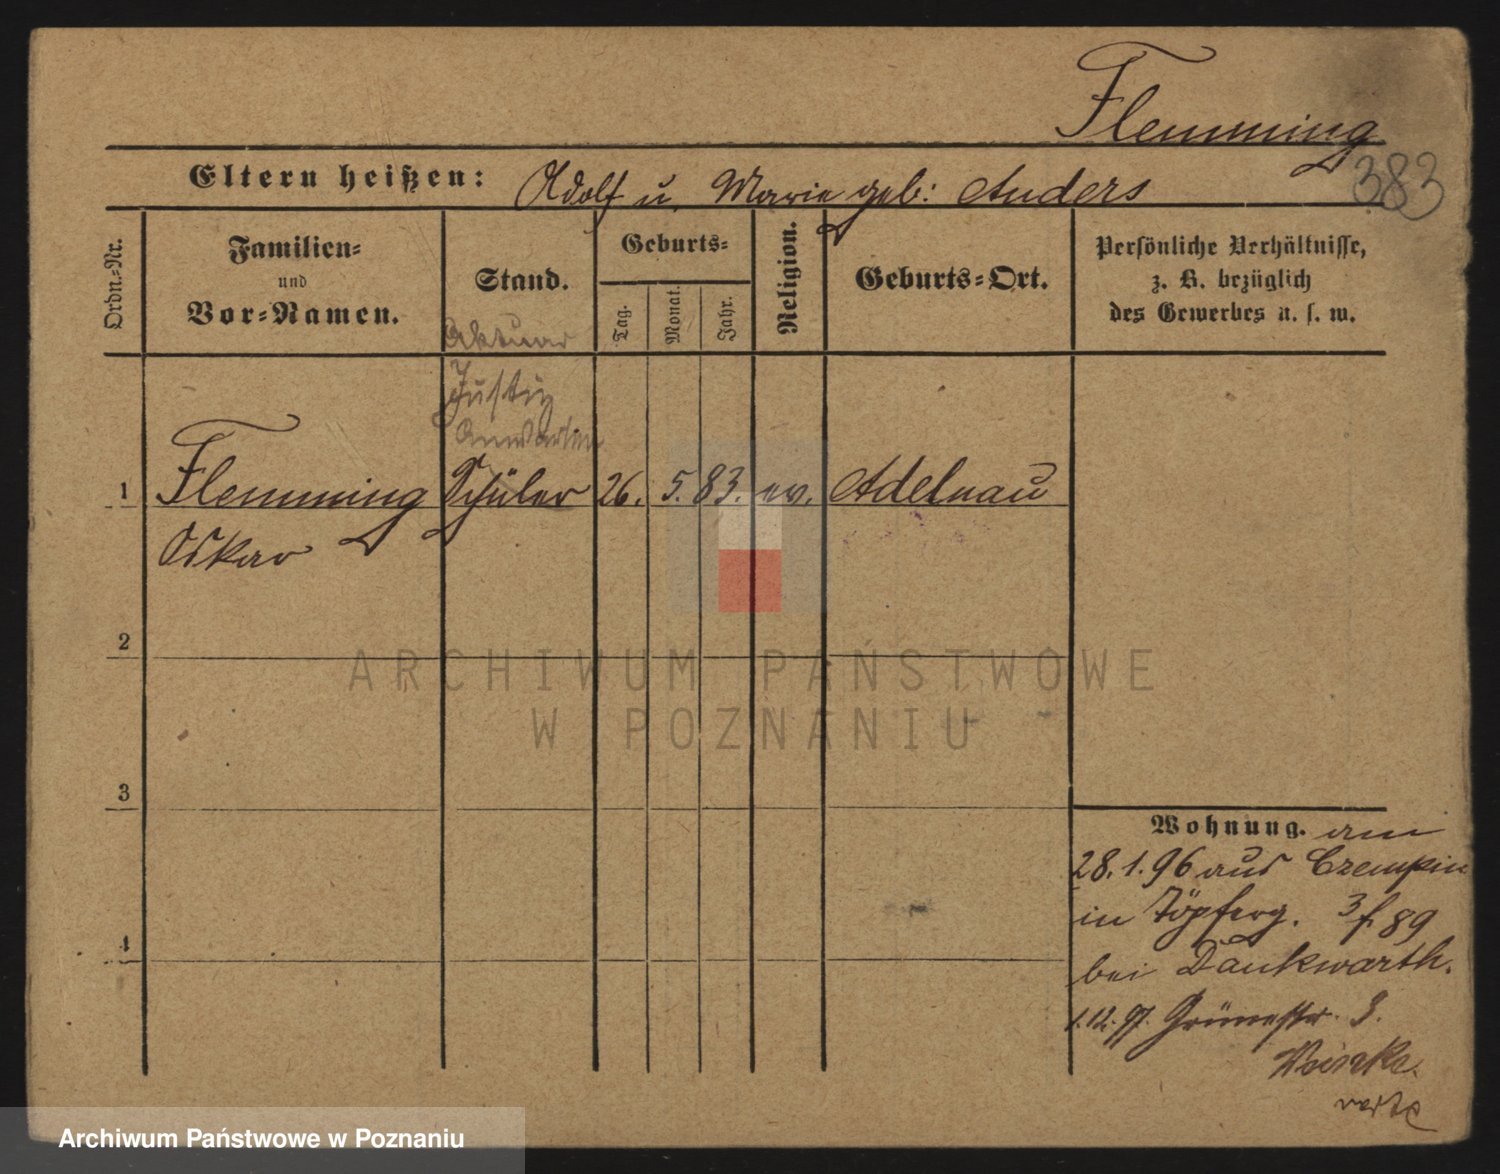 Flemming
383
Eltern heißen: Adolf u. Marie geb: Anders
Ordn.-Nr.
Familien-
und
Vor-Namen.
Stand.
Geburts-
Tag.
Monat.
Jahr.
Religion.
Geburts-Ort.
Persönliche Verhältnisse,
z. B. bezüglich
des Gewerbes u. s. w.
Aktuar
Justiz
Anwärter
1 Flemming Schüler 26. 5. 83. ev. Adelnau
Oskar
2
3
4
ARCHIWUM PAŃSTWOWE
W POZNANIU
Wohnung. am
28.1.96 aus Czempin
in Töpferg. 3 f. 89
bei Dankwarth.
1.12.97. Grünestr. 3.
Archiwum Państwowe w Poznaniu